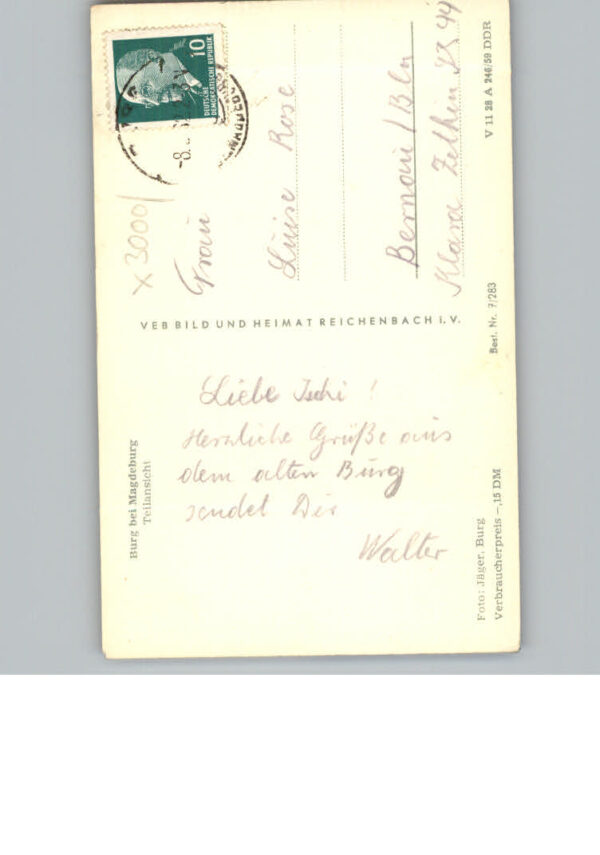 10
DEUTSCHE
DEMOKRATISCHE REPUBLIK
-8.
x 3000/
Frau
Luise Rose
Bernau / Bln
Klara Zetkin 44
VEB BILD UND HEIMAT REICHENBACH i. V.
Liebe
Herzliche Grüße aus
dem alten Burg
sendet Dir
Walter
Burg bei Magdeburg
Teilansicht
Foto: Jäger, Burg
Verbraucherpreis -,15 DM
Best. Nr. 7/283
V 11 28 A 246/59 DDR